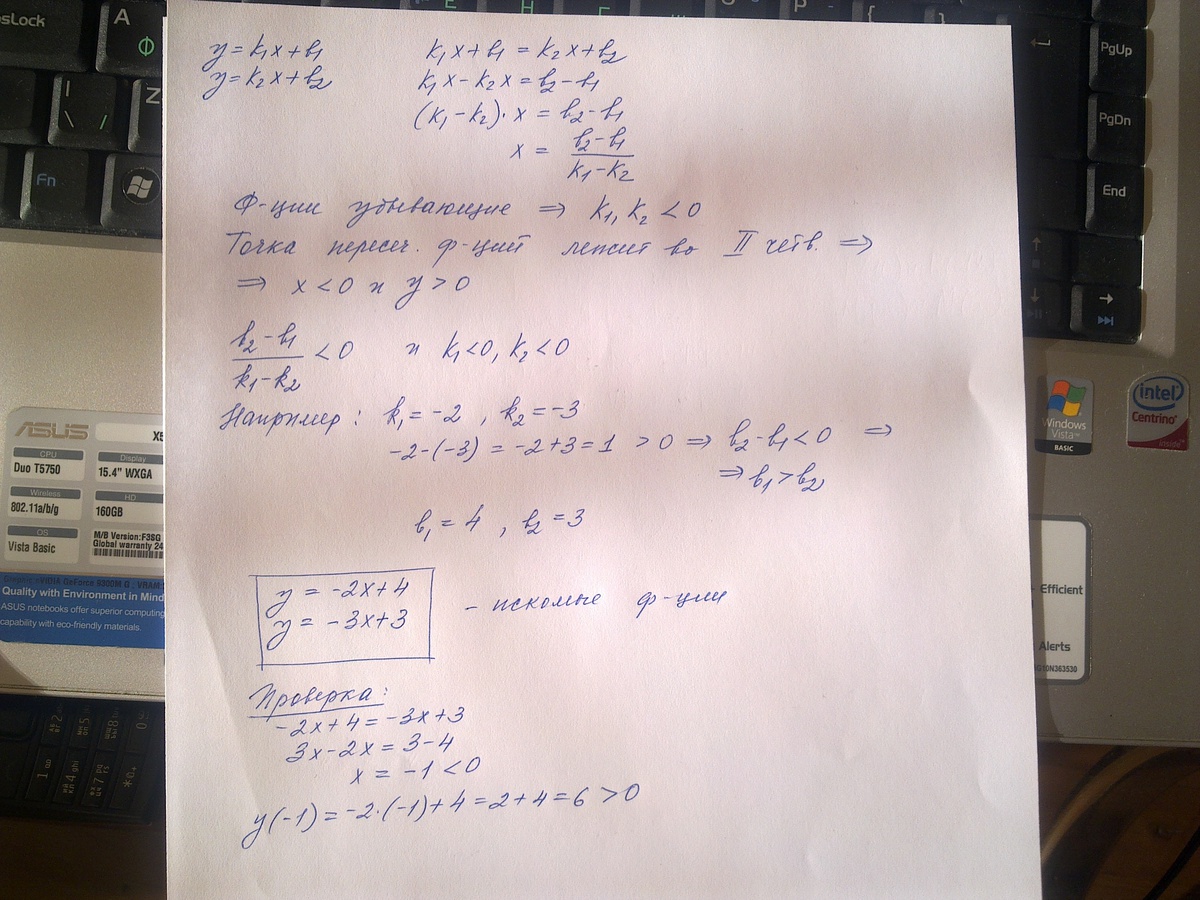 y = k₁x + b₁
y = k₂x + b₂
k₁x + b₁ = k₂x + b₂
k₁x - k₂x = b₂ - b₁
(k₁ - k₂) · x = b₂ - b₁
x = (b₂ - b₁)/(k₁ - k₂)
Ф-ции убывающие ⇒ k₁, k₂ < 0
Точка пересеч. ф-ций лежит во II четв. ⇒
⇒ x < 0 и y > 0
(b₂ - b₁)/(k₁ - k₂) < 0 и k₁ < 0, k₂ < 0
Например: k₁ = -2, k₂ = -3
-2-(-3) = -2+3 = 1 > 0 ⇒ b₂ - b₁ < 0 ⇒
⇒ b₁ > b₂
b₁ = 4, b₂ = 3
y = -2x + 4
y = -3x + 3
- искомые ф-ции
Проверка:
-2x + 4 = -3x + 3
3x - 2x = 3 - 4
x = -1 < 0
y(-1) = -2·(-1) + 4 = 2 + 4 = 6 > 0
A
Ф
Z
Fn
PgUp
PgDn
End
ASUS
CPU
Duo T5750
Display
15.4" WXGA
Wireless
802.11a/b/g
HD
160GB
OS
Vista Basic
M/B Version:F3SG
Global warranty 24
Quality with Environment in Mind
ASUS notebooks offer superior computing
capability with eco-friendly materials.
Windows
Vista™
BASIC
intel
Centrino
inside™
Efficient
Alerts